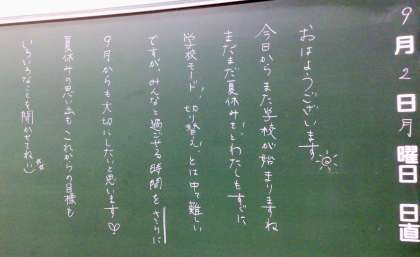 9月2日月曜日 日直
おはようございます
今日からまた学校が始まりますね
まだまだ夏休み
学校モードに切り替え、とは中々難しい
ですが、みんなと過ごせる時間をさらに
9月からも大切にしたいと思います♡
夏休みの思い出も これからの目標も
いろいろなことを聞かせてね